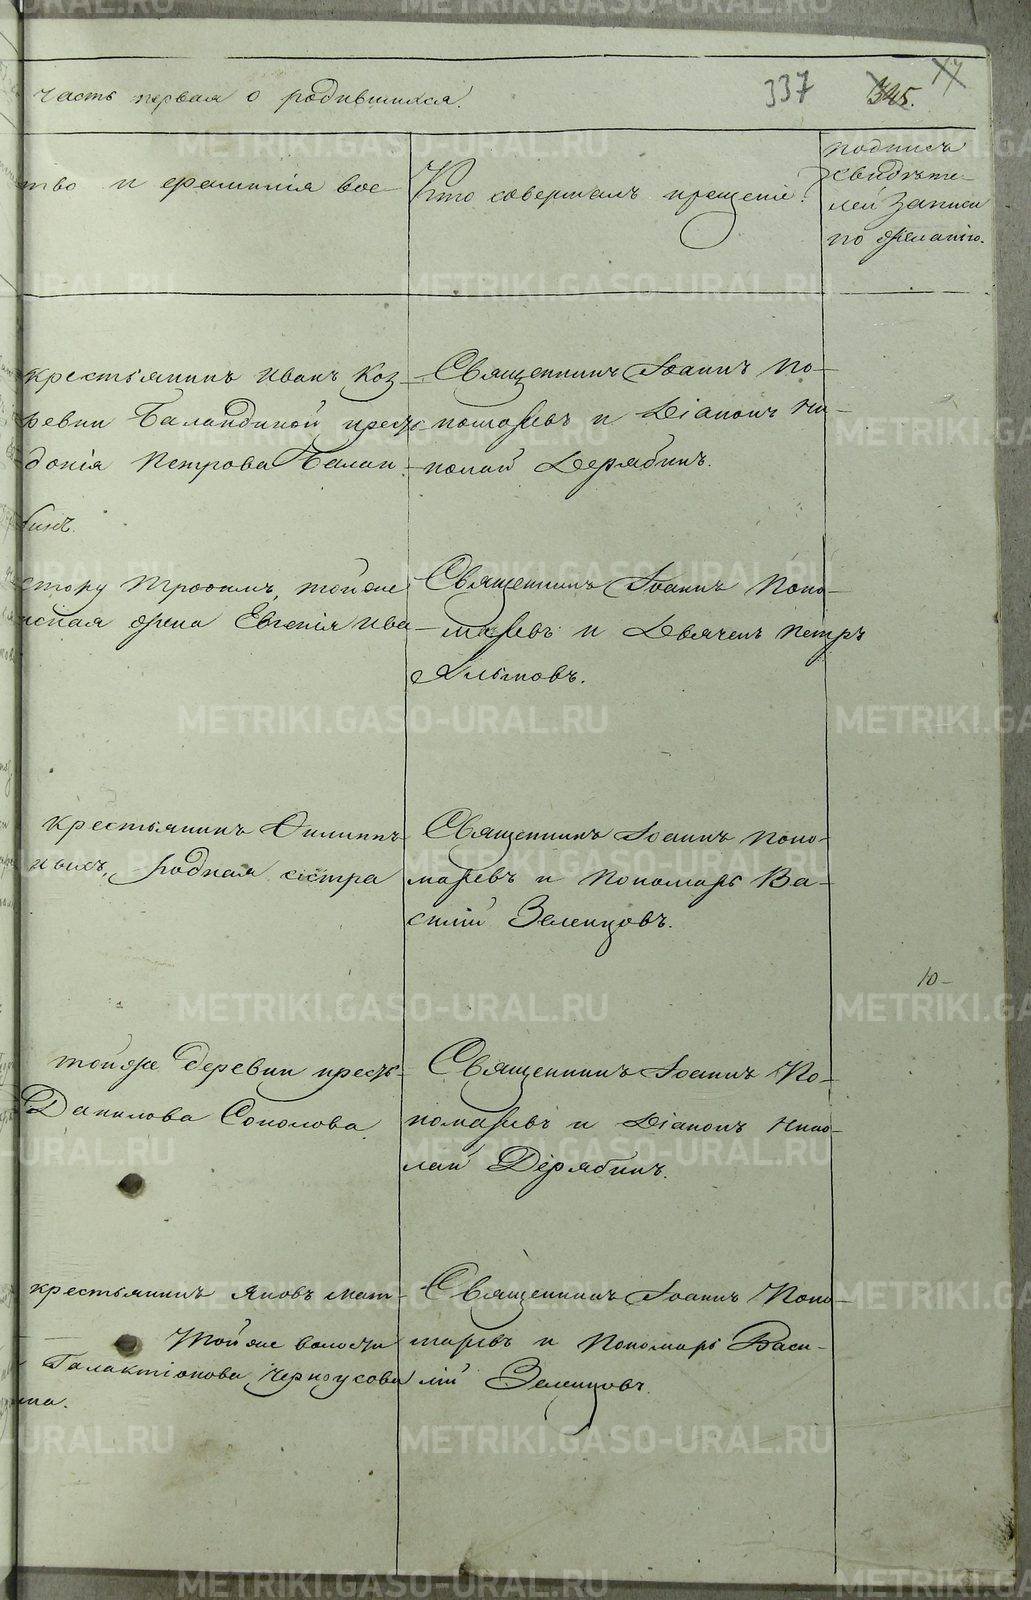 часть первая о родившихся.
337
345.
17
тво и фамилія вос-
Кто совершалъ крещеніе?
Подпись
свидѣте-
лей записи
по желанію.
крестьянинъ Иванъ Коз
ревни Баландиной крестъ
докія Петрова Балан-
бинъ.
Священникъ Іоаннъ По-
номаревъ и Діаконъ Ни-
колай Дерябинъ.
стору Трофимъ, тойже
ская жена Евгенія Ива
Священникъ Іоаннъ Поно-
маревъ и Дьячекъ Петръ
Алымовъ.
крестьянинъ Филиппъ
ныхъ, родная сестра
Священникъ Іоаннъ Поно-
маревъ и Пономарь Ва-
силій Зеленцовъ.
10-
тойже деревни кресть-
Данилова Соколова.
Священникъ Іоаннъ По-
номаревъ и Діаконъ Нико-
лай Дерябинъ.
крестьянинъ Яковъ Мат-
Тойже волости
Галактіонова Черноусова
на.
Священникъ Іоаннъ Поно-
маревъ и Пономарь Васи-
лій Зеленцовъ.
METRIKI.GASO-URAL.RU